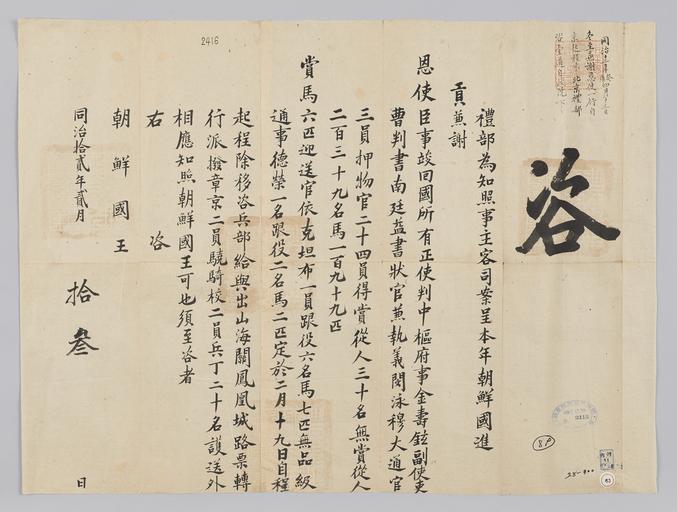 咨
禮部為知照事主客司案呈本年朝鮮國進
貢兼謝
恩使臣事竣回國所有正使判中樞府事金壽鉉副使吏
曹判書南廷益書狀官兼執義閔泳穆大通官
三員押物官二十四員得賞從人三十名無賞從人
二百三十九名馬一百九十九匹
賞馬六匹迎送官依克坦布一員跟役六名馬七匹無品級
通事德榮一名跟役二名馬二匹定於二月十九日自程
起程除移咨兵部給與出山海關鳳凰城路票轉
行派撥章京二員驍騎校二員兵丁二十名護送外
相應知照朝鮮國王可也須至咨者
右咨
朝鮮國王
同治拾貳年貳月拾叁日
2416